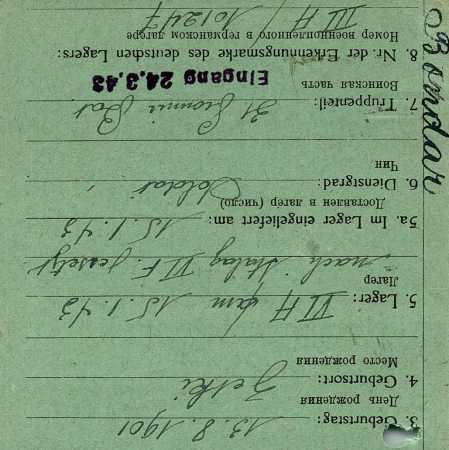 3. Geburtstag: 13.8.1901
День рождения
4. Geburtsort: Jelki
Место рождения
5. Lager: VI A am 15.1.43
Лагерь
nach Stalag VI F versetzt
5a. Im Lager eingeliefert am: 15.1.43
Доставлен в лагерь (число)
6. Dienstgrad: Soldat
Чин
7. Truppenteil: 31 Pionier Bat
Воинская часть
Eingang 24.3.43
8. Nr. der Erkennungsmarke des deutschen Lagers:
Номер военнопленного в германском лагере
/ 101247
Bondar